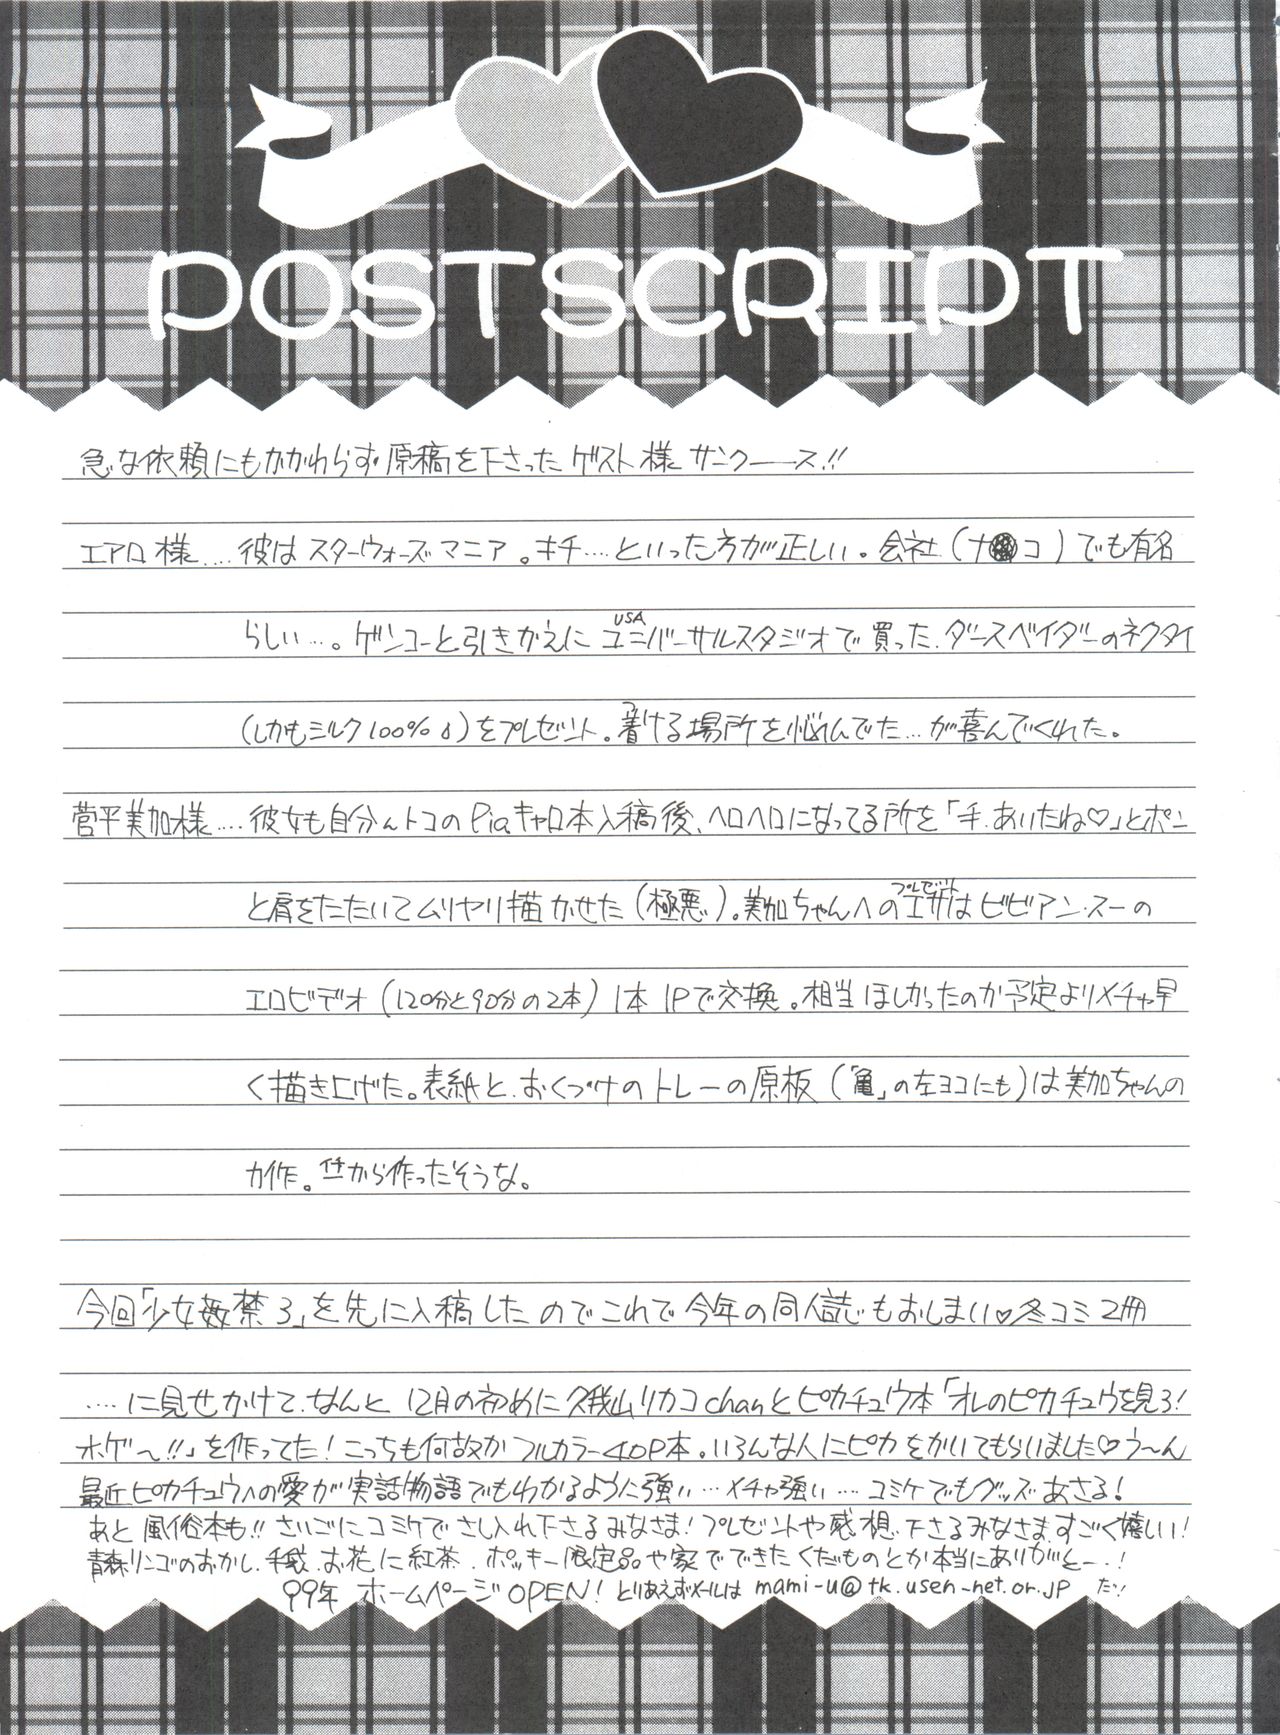 POSTSCRIPT
急な依頼にもかかわらず原稿を下さったゲスト様サンクーース!!
エアロ様....彼はスターウォーズマニア。キチ....といった方が正しい。会社(ナ●コ)でも有名
らしい...。ゲンコーと引きかえにUSAユニバーサルスタジオで買った.ダースベイダーのネクタイ
(しかもシルク100%♪)をプレゼント。着ける場所を悩んでた...が喜んでくれた。
菅平美加様....彼女も自分んトコのPiaキャロ本入稿後、ヘロヘロになってる所を「手.あいたね♡」とポン
と肩をたたいてムリヤリ描かせた(極悪)。美加ちゃんへのエサ(プレゼント)はビビアン・スーの
エロビデオ(120分と90分の2本)1本1Pで交換。相当ほしかったのか予定よりメチャ早
く描き上げた。表紙と.おくづけのトレーの原板(「亀」の左ヨコにも)は美加ちゃんの
力作。イチから作ったそうな。
今回「少女姦禁3」を先に入稿したのでこれで今年の同人誌もおしまい♡冬コミ2冊
....に見せかけて.なんと12月の初めに久我山リカコchanとピカチュウ本「オレのピカチュウを見ろ!
ホゲ〜!!」を作ってた!こっちも何故かフルカラー40P本。いろんな人にピカをかいてもらいました♡う〜ん
最近ピカチュウへの愛が実話物語でもわかるように強い...メチャ強い...コミケでもグッズあさる!
あと風俗本も!!さいごにコミケでさし入れ下さるみなさま!プレゼントや感想下さるみなさますごく嬉しい!
青森リンゴのおかし.手袋.お花に紅茶.ポッキー限定品や家でできたくだものとか本当にありがとー!
99年 ホームページOPEN! とりあえずメールは mami-u@tk.usen-net.or.jp だッ